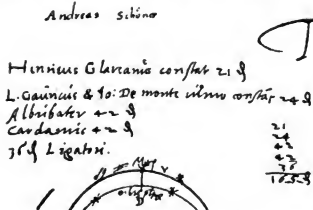 Andreas Schöner
Henricus Glareanus constat 21 ₰
L. Gauricus & Jo: De monte ulmo constāt 24 ₰
Albubater 42 ₰
Cardanus 42 ₰
36 ₰ Ligatori.
21
24
42
42
36
165 ₰